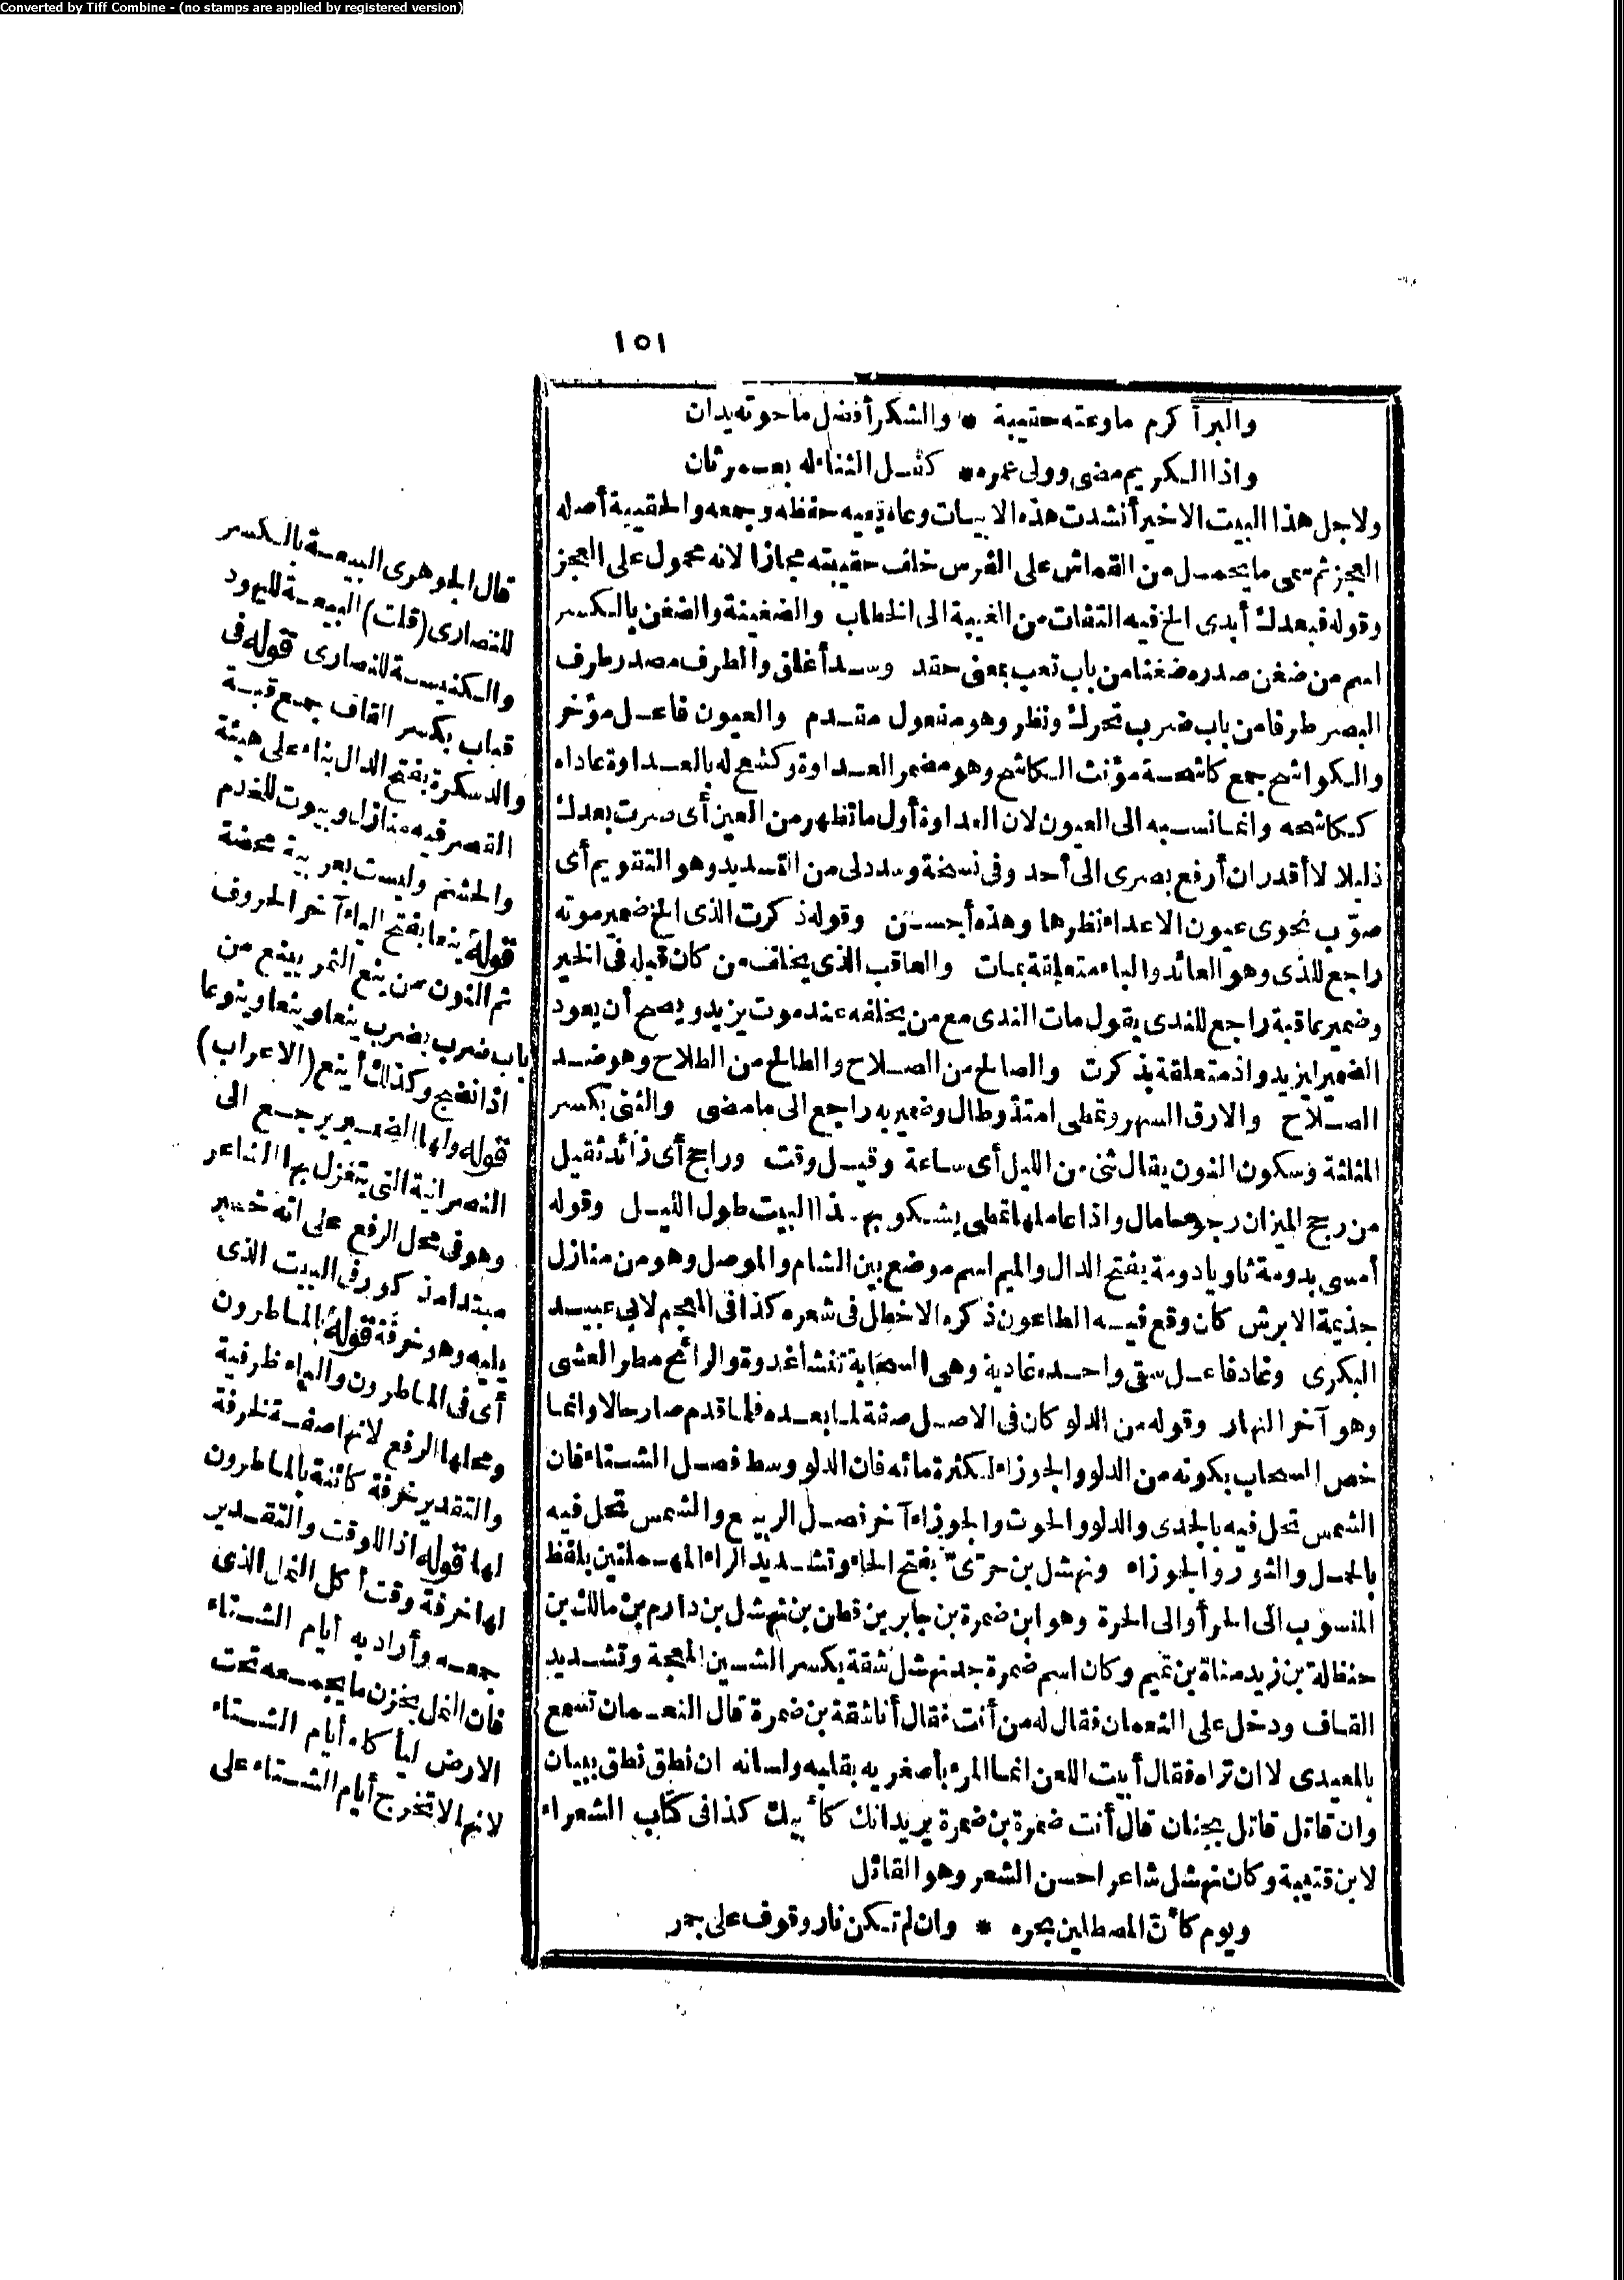 Converted by Tiff Combine - (no stamps are applied by registered version)
١٥١
والبرأ كرم ماوعته حقيبة * والشكر أفضل ماحوته يدان
واذا الكريم مضى وولى عمره * كفل الثناء له بعمر ثان
ولاجل هذا البيت الاخير أنشدت هذه الابيات وعاه يعيه حفظه وجمعه والحقيبة أصله
العجز ثم سمى ما يحمل من القماش على الفرس خلف حقيبته مجازا لانه محمول على العجز
وقوله فبعدك أبدى الخ فيه التفات من الغيبة الى الخطاب والضغينة والضغن بالكسر
اسم من ضغن صدره ضغنا من باب تعب بمعنى حقد وسد أغلق والطرف مصدر طرف
البصر طرفا من باب ضرب تحرك ونظر وهو مفعول مقدم والعيون فاعل مؤخر
والكواشح جمع كاشحة مؤنث الكاشح وهو مضمر العداوة وكشح له بالعداوة عاداه
ككاشحه وانما نسبه الى العيون لان العداوة أول ما تظهر من العين أى صرت بعدك
ذليلا لا أقدر ان أرفع بصرى الى أحد وفى نسخة وسدد لى من التسديد وهو التقويم أى
صوّب نحوى عيون الاعداء نظرها وهذه أحسن وقوله ذكرت الذى الخ ضمير موته
راجع للذى وهو العائد والباء متعلقة بمات والعاقب الذى يخلف من كان قبله فى الخير
وضمير عاقبة راجع للندى يقول مات الندى مع من يخلفه عند موت يزيد ويصح أن يعود
الضمير ليزيد واذ متعلقة بذكرت والصالح من الصلاح والطالح من الطلاح وهو ضد
الصلاح والارق السهر وتمطى امتد وطال وضمير به راجع الى ما مضى والثنى بكسر
المثلثة وسكون النون يقال ثنى من الليل أى ساعة وقيل وقت وراجح أى زائد ثقيل
من رجح الميزان رجوحا مال واذا عاملها تمطى يشكو بهذا البيت طول الليل وقوله
أمسى بدومة ثاويا دومة بفتح الدال والميم اسم موضع بين الشام والموصل وهو من منازل
جذيمة الابرش كان وقع فيه الطاعون ذكره الاخطل فى شعره كذا فى المعجم لابى عبيد
البكرى وغاد فاعل سقى واحده غادية وهى السحابة تنشأ غدوة والرائح مطر العشى
وهو آخر النهار وقوله من الدلو كان فى الاصل صفة لما بعده فلما قدم صار حالا وانما
خص السحاب بكونه من الدلو والجوزاء لكثرة مائه فان الدلو وسط فصل الشتاء فان
الشمس تحل فيه بالجدى والدلو والحوت والجوزاء آخر فصل الربيع والشمس تحل فيه
بالحمل والثور والجوزاء ونهشل بن حرّىّ بفتح الحاء وتشديد الراء المهملتين بلفظ
المنسوب الى الحر أو الى الحرة وهو ابن ضمرة بن جابر بن قطن بن نهشل بن دارم بن مالك بن
حنظلة بن زيد مناة بن تميم وكان اسم ضمرة جد نهشل شقة بكسر الشين المعجمة وتشديد
القاف ودخل على النعمان فقال له من أنت فقال أنا شقة بن ضمرة قال النعمان تسمع
بالمعيدى لا ان تراه فقال أبيت اللعن انما المرء بأصغريه بقلبه ولسانه ان نطق نطق ببيان
وان قاتل قاتل بجنان قال أنت ضمرة بن ضمرة يريد انك كأبيك كذا فى كتاب الشعراء
لابن قتيبة وكان نهشل شاعرا حسن الشعر وهو القائل
ويوم كأنّ المصطلين بحره * وان لم تكن نار وقوف على جمر
قال الجوهرى البيعة بالكسر
للنصارى (قلت) البيعة لليهود
والكنيسة للنصارى قوله فى
قباب بكسر القاف جمع قبة
والدسكرة بفتح الدال بناء على هيئة
القصر فيه منازل وبيوت للخدم
والحشم وليست بعربية محضة
قوله ينعا بفتح الياء آخر الحروف
ثم النون من ينع الثمر يينع من
باب ضرب يضرب ينعا وينعا وينوعا
اذا نضج وكذلك أينع (الاعراب)
قوله ولها الضمير يرجع الى
النصرانية التى يتغزل بها الشاعر
وهو فى محل الرفع على انه خبر
مبتدا مذكور فى البيت الذى
يليه وهو خرفة قوله بالماطرون
أى فى الماطرون والباء ظرفية
ومحلها الرفع لانها صفة لخرفة
والتقدير خرفة كائنة بالماطرون
لها قوله اذا للوقت والتقدير
لها خرفة وقت أكل النمل الذى
جمعه وأراد به أيام الشتاء
فان النمل يخزن ما يجمعه تحت
الارض ليأكله أيام الشتاء
لانها لا تخرج أيام الشتاء على